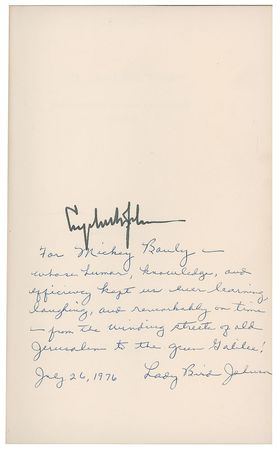 Lyndon B. Johnson
For Mickey Bauly –
whose humor, knowledge, and
efficiency kept us ever learning,
laughing, and remarkably on time
– from the winding streets of old
Jerusalem to the green Galilee!
July 26, 1976 Lady Bird Johnson